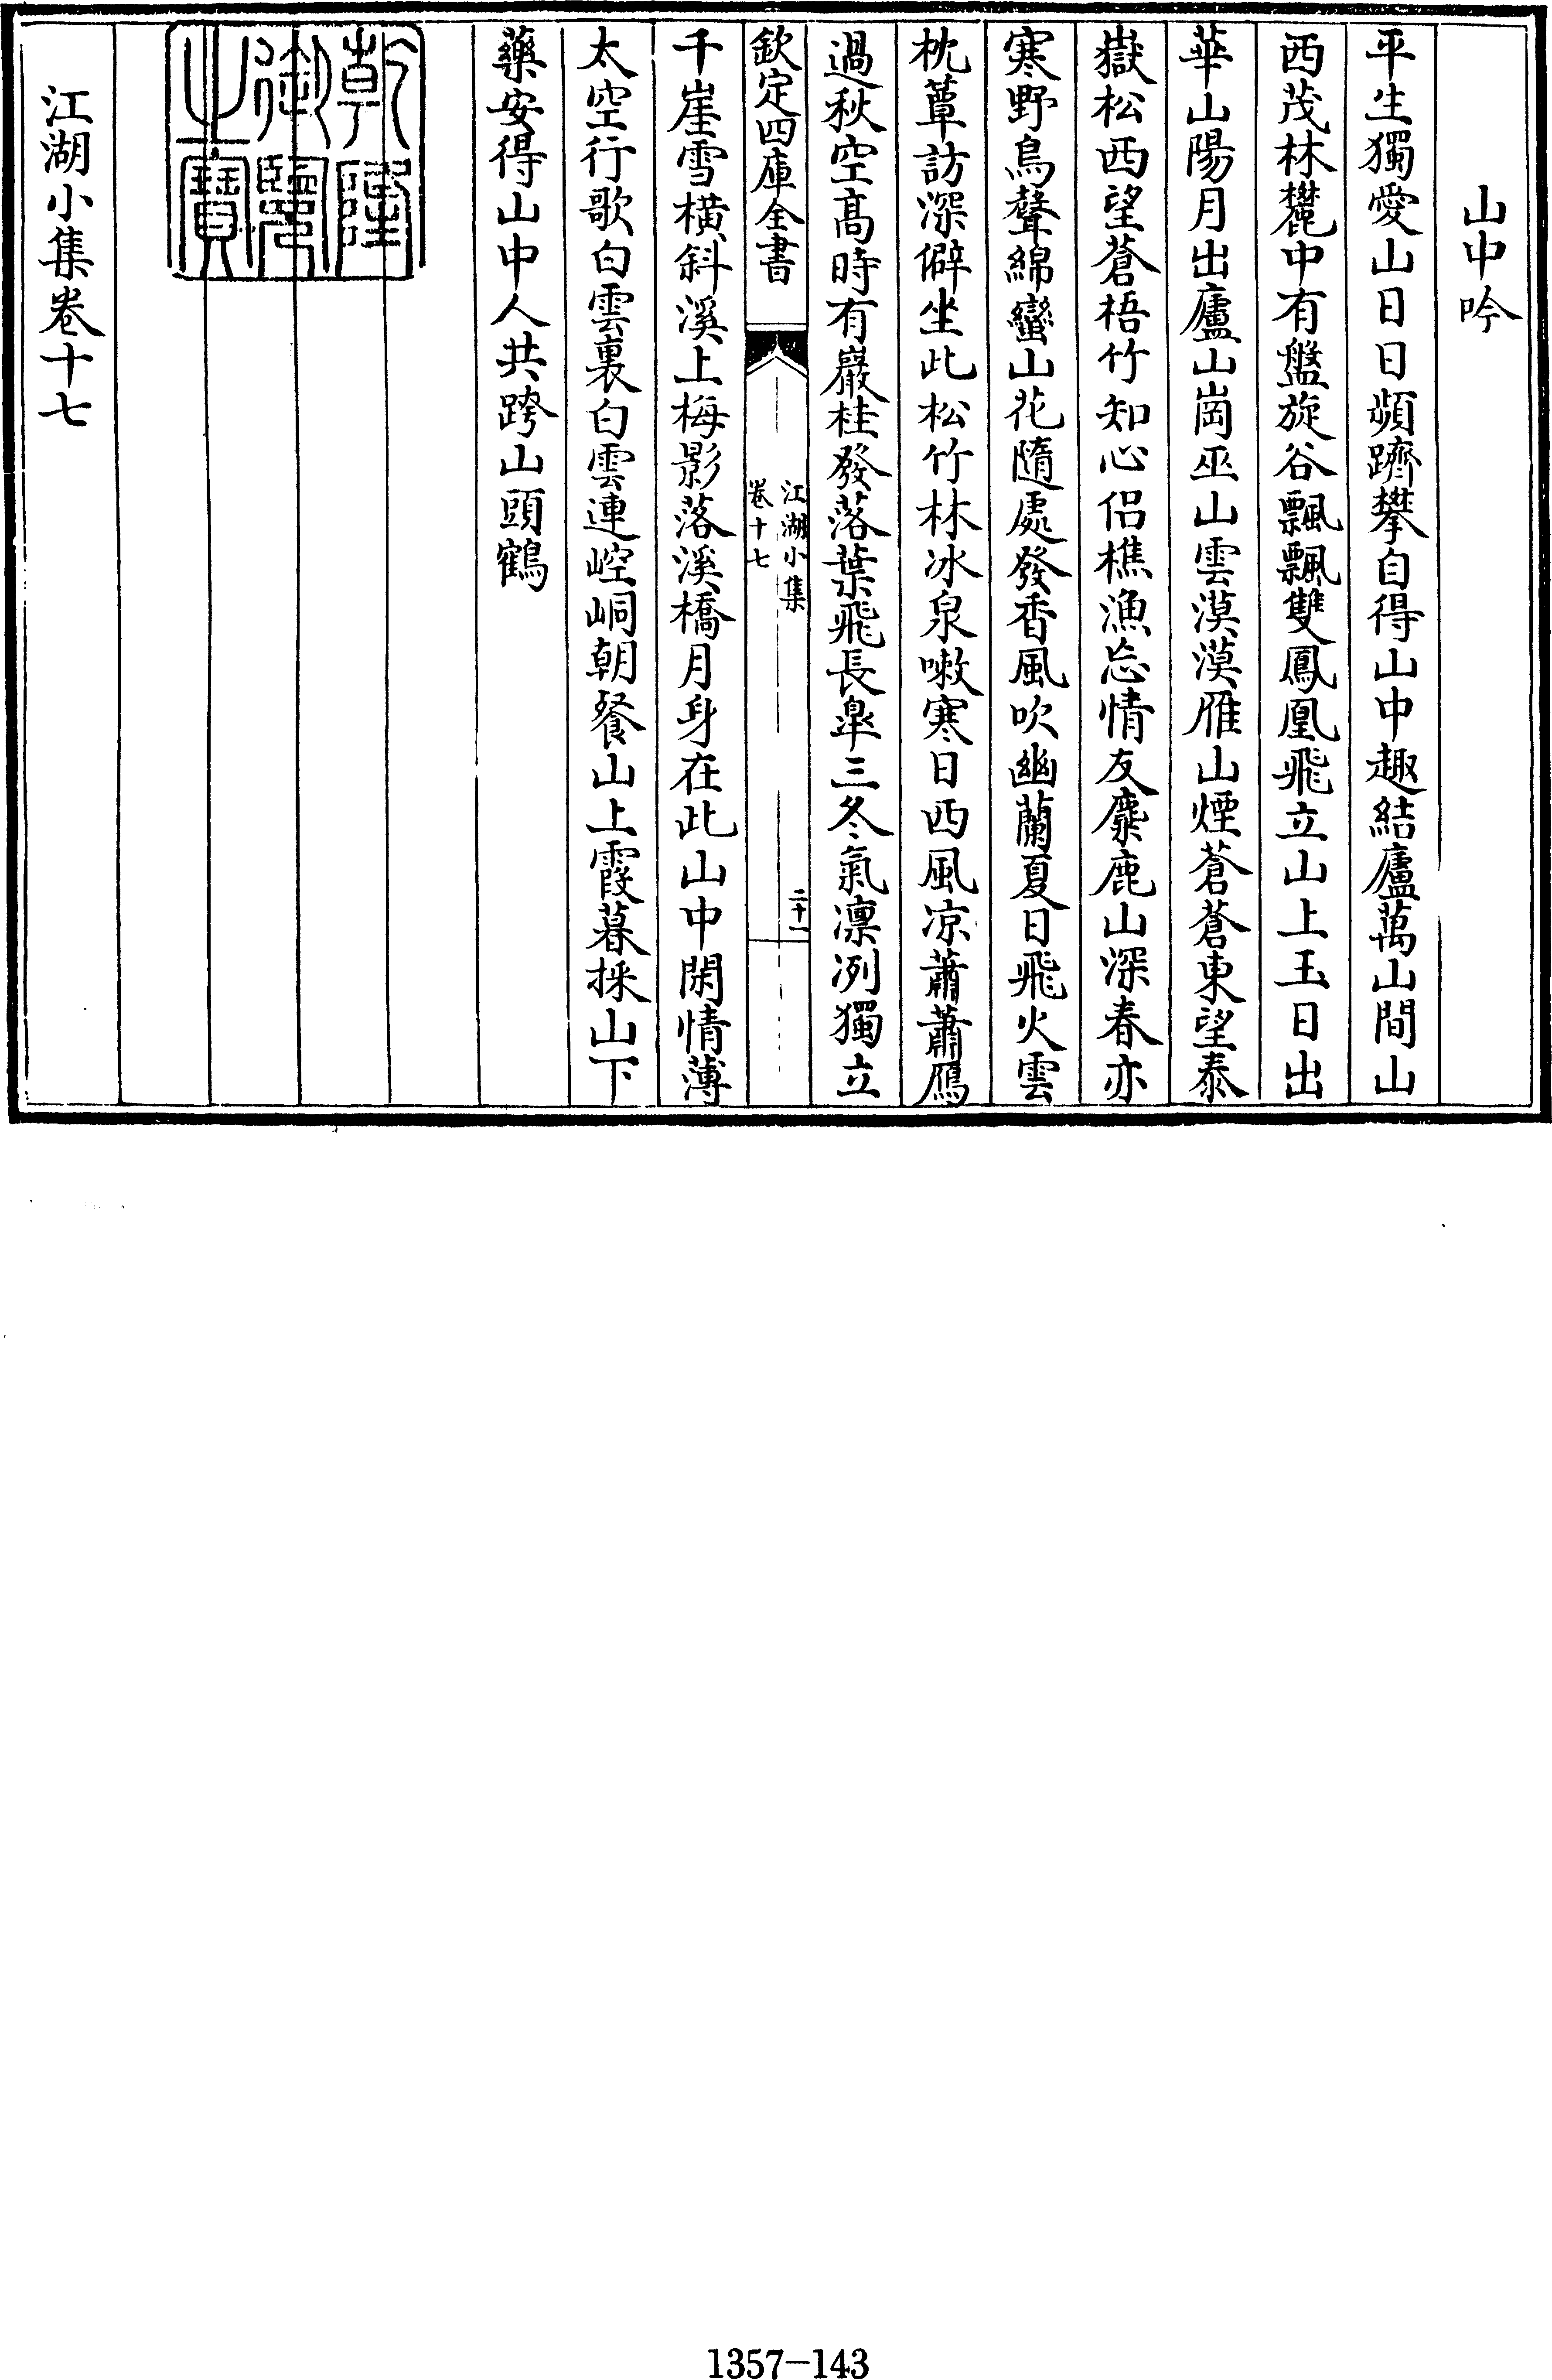 山中吟
平生獨愛山日日頻躋攀自得山中趣結廬萬山間山
西茂林麓中有盤旋谷飄飄雙鳳凰飛立山上玉日出
華山陽月出廬山崗巫山雲漠漠雁山煙蒼蒼東望泰
嶽松西望蒼梧竹知心侣樵漁忘情友麋鹿山深春亦
寒野鳥聲綿蠻山花隨處發香風吹幽蘭夏日飛火雲
枕蕈訪深僻坐此松竹林冰泉嗽寒日西風凉蕭蕭鴈
過秋空高時有巖桂發落葉飛長臯三冬氣凛冽獨立
欽定四庫全書
江湖小集
卷十七
二十一
千崖雪橫斜溪上梅影落溪橋月身在此山中閑情薄
太空行歌白雲裏白雲連崆峒朝餐山上霞暮採山下
藥安得山中人共跨山頭鶴
乾隆
御覽
之寶
江湖小集卷十七
1357-143